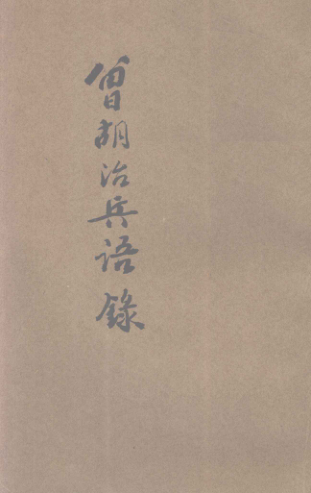 曾胡治兵语録